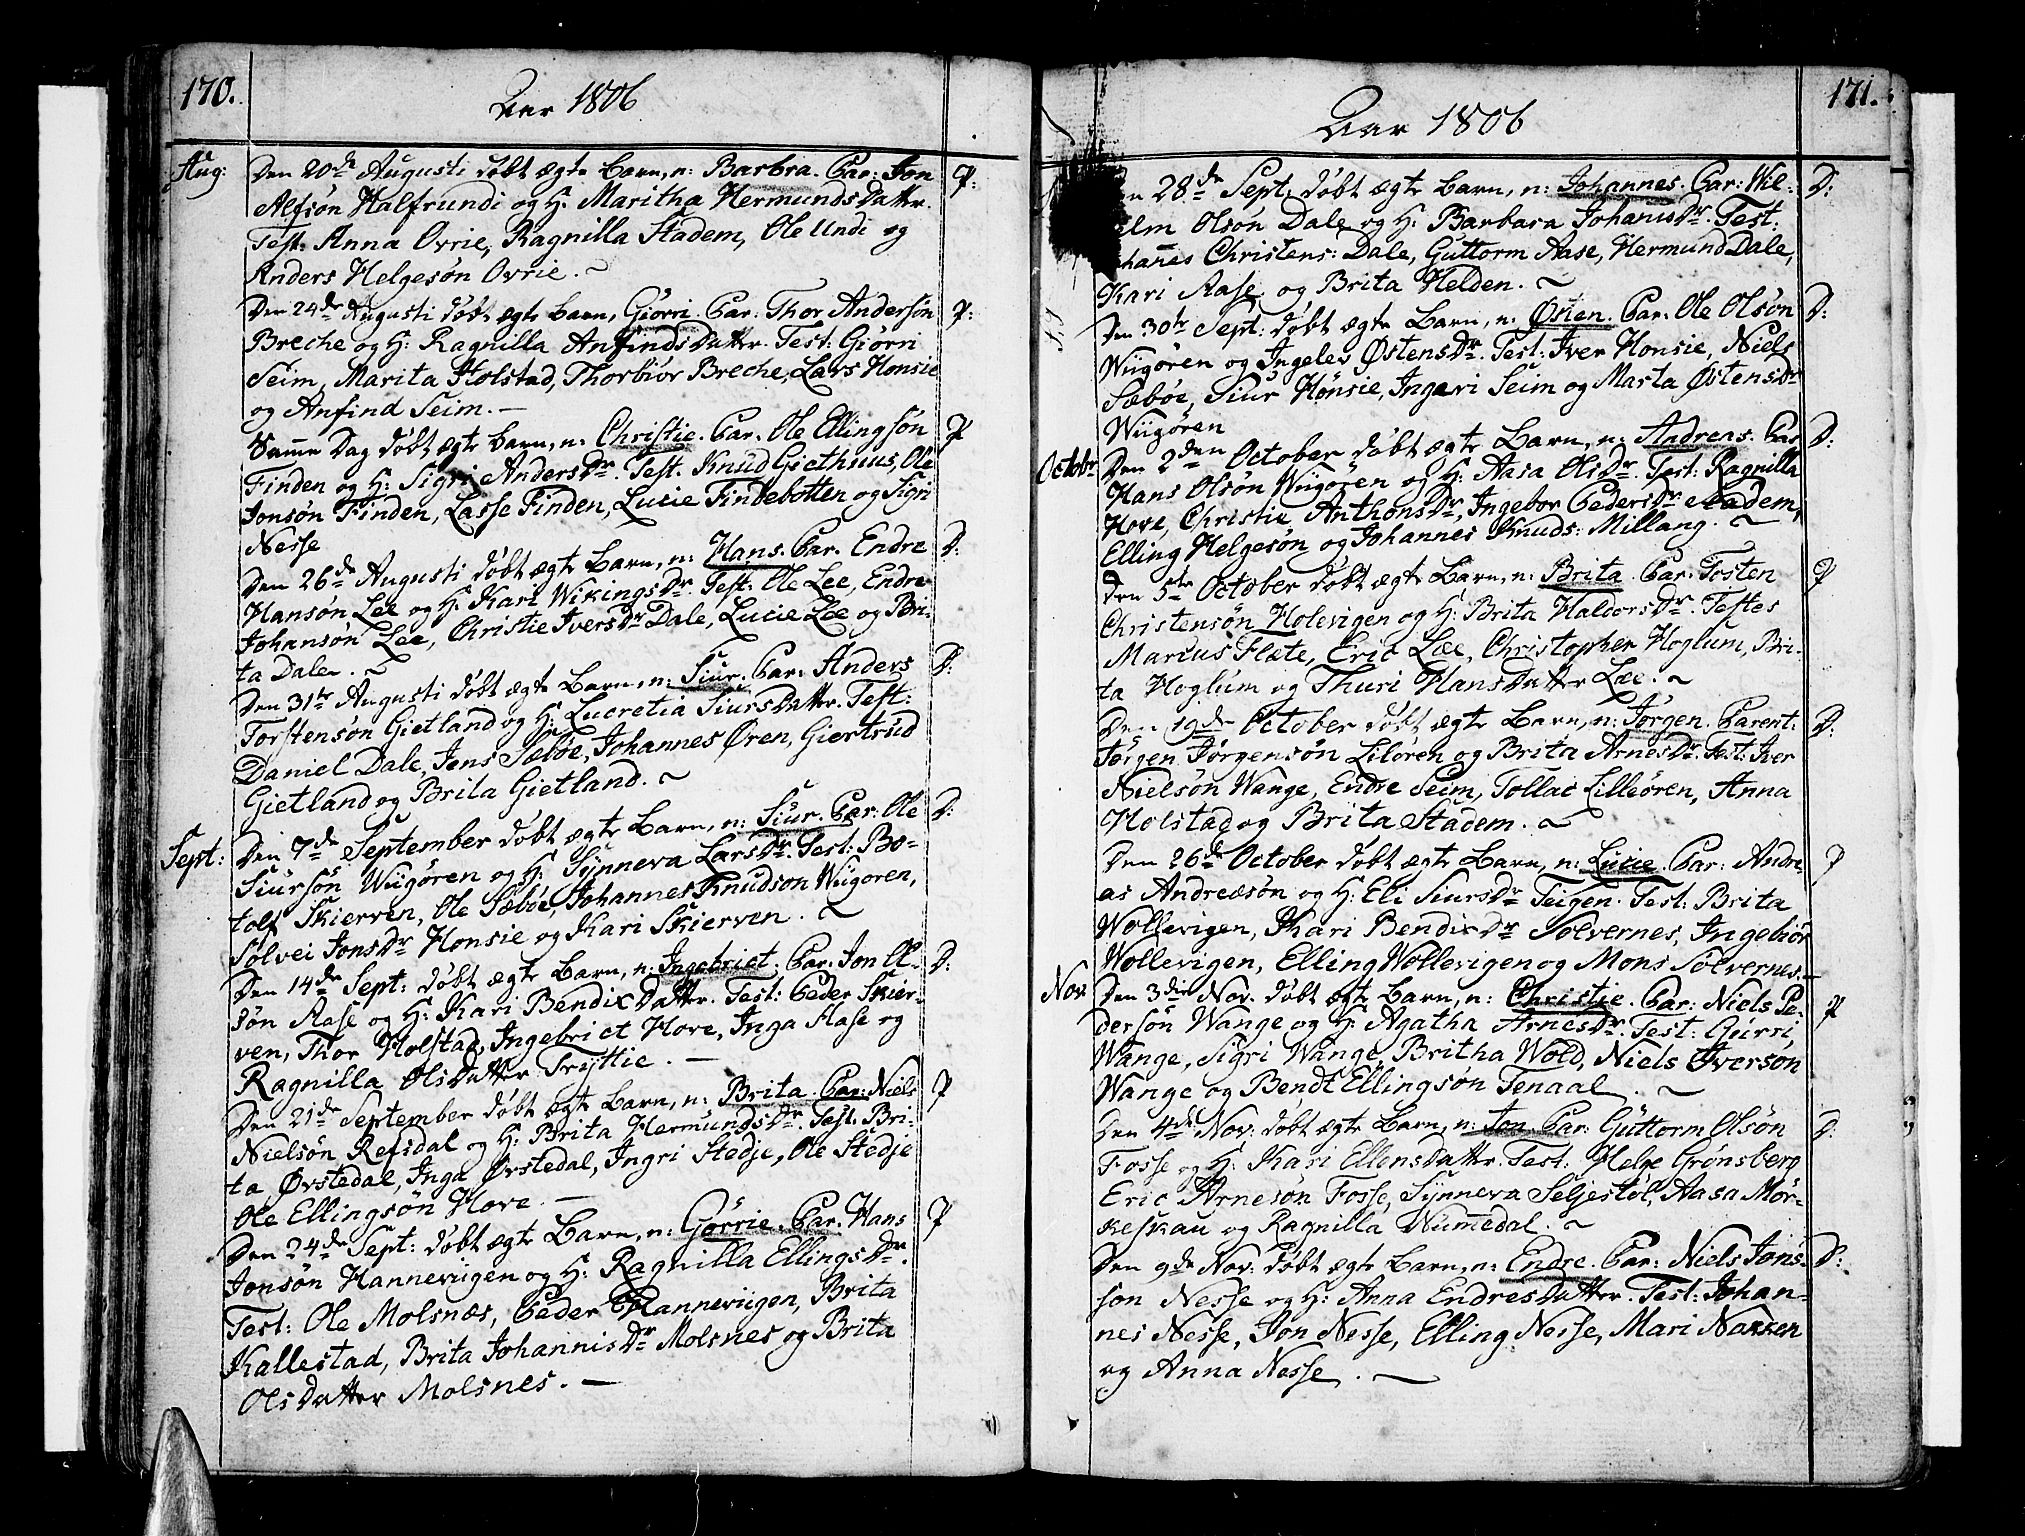 170.
Aar 1806
Aug: Den 20de Augusti døbt ægte Barn, n: Barbra. Par: Jon P:
Alfsøn Halfrundi og H: Maritha Hermunds Datter.
Test: Anna Ovrie, Ragnilla Stadem, Ole Undi og
Anders Helgesøn Ovrie. ~
Den 24de Augusti døbt ægte Barn, Giørri. Par: Thor Andersøn P:
Breche og H: Ragnilla Anfinds Datter. Test: Giørri
Seim, Marita Holstad, Thorbiør Breche, Lars Honsie
og Anfind Seim. —
Samme Dag døbt ægte Barn, n: Christie. Par. Ole Ellingsøn P
Finden og H: Sigri Anders Dr. Test. Knud Giethuus, Ole
Jonsøn Finden, Lasse Finden, Lucie Findebotten og Sigri
Nesse
Den 26de Augusti døbt ægte Barn, n: Hans. Par. Endre D:
Hansøn Lee og H: Kari Wikings Dr. Test: Ole Lee, Endre
Johansøn Lee, Christie Ivers Dr Dale, Lucie Lee og Bri-
ta Dale. ~
Den 31te Augusti døbt ægte Barn, n: Siur. Par: Anders D:
Torstensøn Gietland og H: Lucretia Siurs Datter. Test:
Daniel Dale, Jens Sæbøe, Johannes Øren, Giertrud
Gietland og Brita Gietland. ~
Sept: Den 7de September døbt ægte Barn, n: Siur. Par: Ole D:
Siursøn Wiigøren og H: Synneva Lars Dr. Test: Bo-
tolf Skierven, Ole Sæboe, Johannes Knudson Wiigøren,
Sølvei Jons Dr Honsie og Kari Skierven. ~
Den 14de Sept: døbt ægte Barn, n: Ingebriet. Par: Jon El- D:
søn Aase og H: Kari Bendix Datter. Test: Peder Skier-
ven, Thor Holstad, Ingebriet Hove, Inga Aase og
Ragnilla Ols Datter Tryttie. —
Den 21de September døbt ægte Barn, n: Brita. Par: Niels P
Nielsøn Refsdal og H: Brita Hermunds Dr. Test: Bri-
ta Ørstedal, Inga Ørstedal, Ingri Stedje, Ole Stedje
Ole Ellingsøn Hove. —
Den 24de Sept: døbt ægte Barn, n: Gørrie. Par. Hans P
Jonsøn Hanneviigen og H: Ragnilla Ellings Dr.
Test: Ole Molsnæs, Peder Hanneviigen, Brita
Kallestad, Brita Johannis Dr Molsnes og Brita
Ols Datter Molsnes. —
171.
Aar 1806
28de Sept. døbt ægte Barn, n: Johannes. Par: Wil- D:
Olsøn Dale og H: Barbara Johanis Dr. Test:
Christens: Dale, Guttorm Aase, Hermund Dale,
Kari Aase og Brita Helden. ~
Den 30te Sept: døbt ægte Barn, n: Østen. Par. Ole Olsøn D:
Wiigøren og Ingelev Østens Dr. Test: Iver Honsie, Niels
Sæbøe, Siur Hønsie, Ingeri Seim og Marta Østens Dr
Wiigøren
Octobr Den 2den October døbt ægte Barn, n: Andreas. Par D:
Hans Olsøn Wiigøren og H: Aasa Ols Dr. Test: Ragnilla
Hove, Christie Anthons Dr, Ingebor Peders Dr Stadem,
Elling Helgesøn og Johannes Knuds: Millang. ~
Den 5te October døbt ægte Barn, n: Brita. Par: Tosten P
Christensøn Holevigen og H: Brita Haldors Dr. Testes
Marcus Flæte, Eric Læe, Christopher Hoglum, Bri-
ta Hoglum og Thuri Hans Datter Læe. ~
Den 19de October døbt ægte Barn, n: Jørgen. Parent: D:
Jørgen Jørgensøn Liløren og Brita Arnes Dr. Test: Iver
Nielsøn Wange, Endre Seim, Tollac Lilleøren, Anna
Holstad og Brita Stadem. ~
Den 26de October døbt ægte Barn, n: Lucie. Par: Andre- P
as Andreæsøn og H: Eli Siurs Dr Teigen. Test: Brita
Wollevigen, Kari Bendix Dr Solvernes, Ingebiør
Wollevigen, Elling Wollevigen og Mons Sølvernes. —
Nov Den 3die Nov. døbt ægte Barn, n: Christie. Par: Niels Pe- P
dersøn Wange og H: Agatha Arnes Dr. Test: Gurri
Wange, Sigri Wange, Britha Wold, Niels Iversøn
Wange og Bendt Ellingsøn Tenaal. ~
Den 4de Nov: døbt ægte Barn, n: Jon. Par: Guttorm Olsøn D:
Fosse og H: Kari Ellens Datter. Test: Helge Grønsberg
Eric Arnesøn Fosse, Synneva Seljestøl, Aasa Mør-
keskau og Ragnilla Wummedal. ~
Den 9de Nov: døbt ægte Barn, n: Endre. Par: Niels Jons- D:
son Nesse og H: Anna Endres Datter. Test: Johan-
nes Nesse, Jon Nesse, Elling Nesse, Mari Nakken
og Anna Nesse. ~